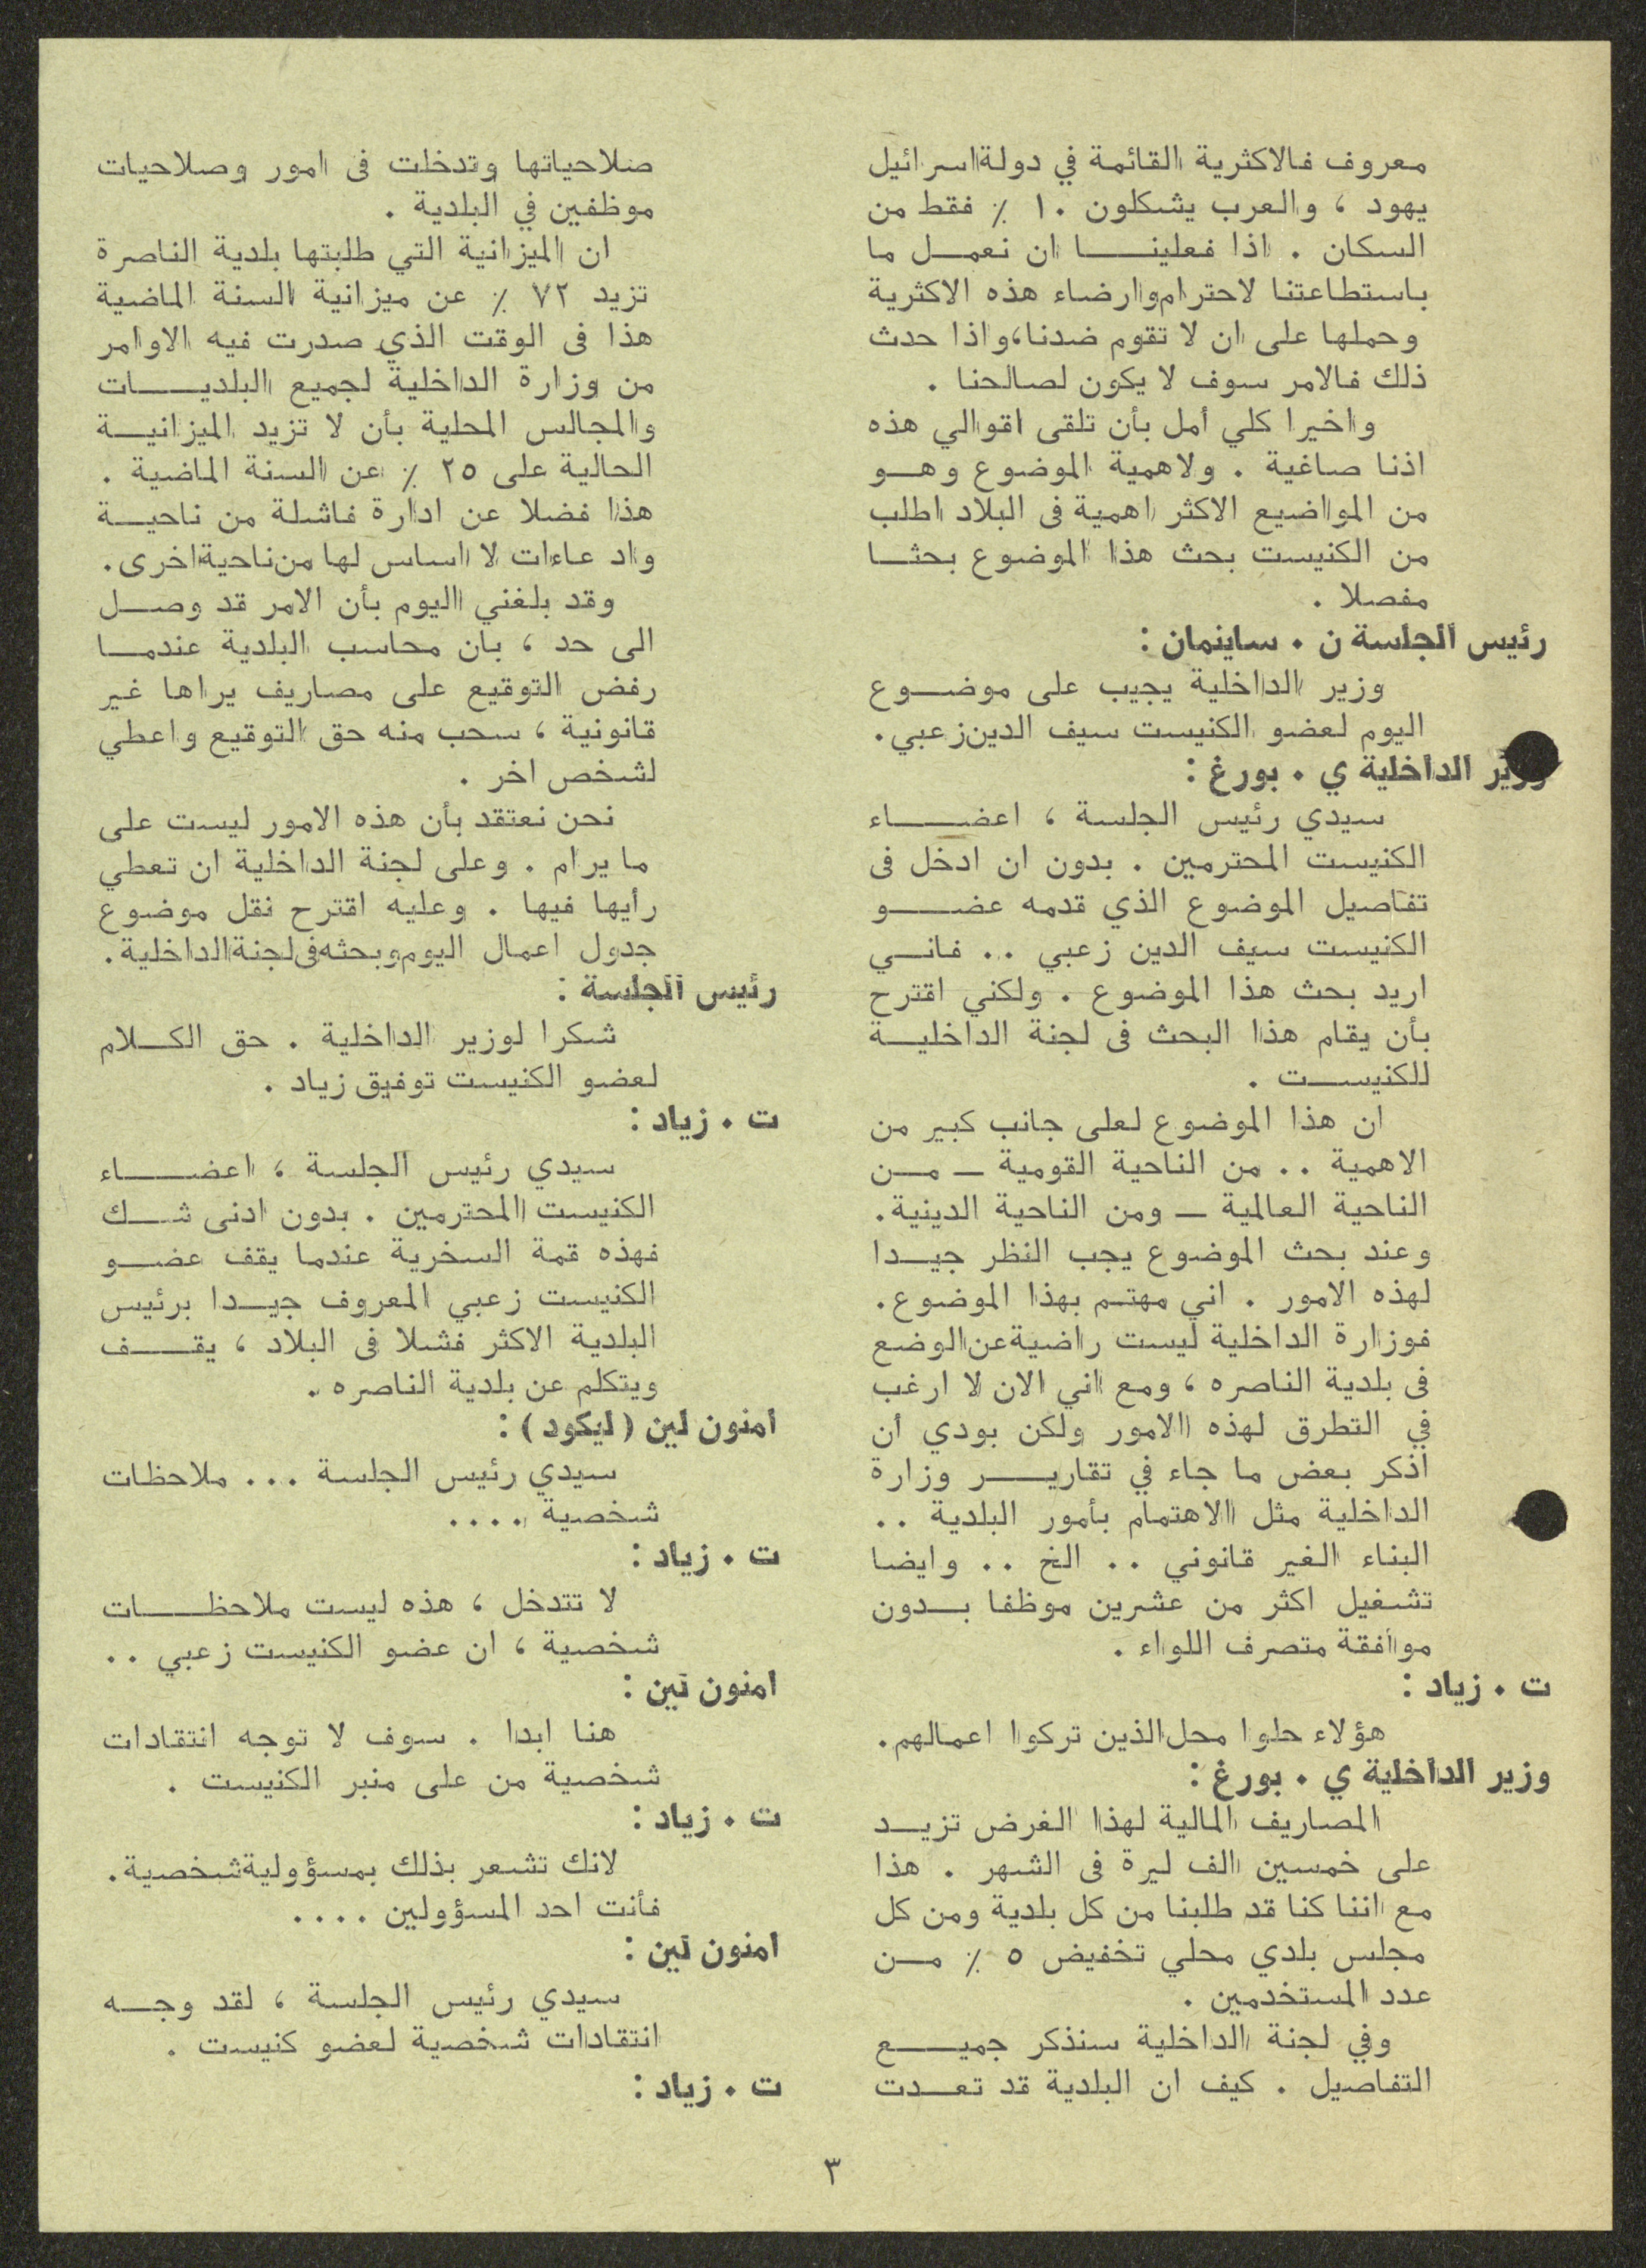 معروف فالاكثرية القائمة في دولة اسرائيل
يهود ، والعرب يشكلون ١٠ ٪ فقط من
السكان . اذا فعلينا ان نعمل ما
باستطاعتنا لاحترام وارضاء هذه الاكثرية
وحملها على ان لا تقوم ضدنا، واذا حدث
ذلك فالامر سوف لا يكون لصالحنا .
واخيرا كلي أمل بأن تلقى اقوالي هذه
اذنا صاغية . ولاهمية الموضوع وهو
من المواضيع الاكثر اهمية فى البلاد اطلب
من الكنيست بحث هذا الموضوع بحثا
مفصلا .
رئيس الجلسة ن . ساينمان :
وزير الداخلية يجيب على موضوع
اليوم لعضو الكنيست سيف الدين زعبي .
وزير الداخلية ي . بورغ :
سيدي رئيس الجلسة ، اعضاء
الكنيست المحترمين . بدون ان ادخل فى
تفاصيل الموضوع الذي قدمه عضو
الكنيست سيف الدين زعبي .. فاني
اريد بحث هذا الموضوع . ولكني اقترح
بأن يقام هذا البحث فى لجنة الداخلية
للكنيست .
ان هذا الموضوع لعلى جانب كبير من
الاهمية .. من الناحية القومية — من
الناحية العالمية — ومن الناحية الدينية .
وعند بحث الموضوع يجب النظر جيدا
لهذه الامور . اني مهتم بهذا الموضوع .
فوزارة الداخلية ليست راضية عن الوضع
فى بلدية الناصره ، ومع اني الان لا ارغب
في التطرق لهذه الامور ولكن بودي أن
اذكر بعض ما جاء في تقارير وزارة
الداخلية مثل الاهتمام بأمور البلدية ..
البناء الغير قانوني .. الخ .. وايضا
تشغيل اكثر من عشرين موظفا بدون
موافقة متصرف اللواء .
ت . زياد :
هؤلاء حلوا محل الذين تركوا اعمالهم .
وزير الداخلية ي . بورغ :
المصاريف المالية لهذا الغرض تزيد
على خمسين الف ليرة فى الشهر . هذا
مع اننا كنا قد طلبنا من كل بلدية ومن كل
مجلس بلدي محلي تخفيض ٥ ٪ من
عدد المستخدمين .
وفي لجنة الداخلية سنذكر جميع
التفاصيل . كيف ان البلدية قد تعدت
صلاحياتها وتدخلت فى امور وصلاحيات
موظفين في البلدية .
ان الميزانية التي طلبتها بلدية الناصرة
تزيد ٧٢ ٪ عن ميزانية السنة الماضية
هذا فى الوقت الذي صدرت فيه الاوامر
من وزارة الداخلية لجميع البلديات
والمجالس المحلية بأن لا تزيد الميزانية
الحالية على ٢٥ ٪ عن السنة الماضية .
هذا فضلا عن ادارة فاشلة من ناحية
واد عاءات لا اساس لها من ناحية اخرى .
وقد بلغني اليوم بأن الامر قد وصل
الى حد ، بان محاسب البلدية عندما
رفض التوقيع على مصاريف يراها غير
قانونية ، سحب منه حق التوقيع واعطي
لشخص اخر .
نحن نعتقد بأن هذه الامور ليست على
ما يرام . وعلى لجنة الداخلية ان تعطي
رأيها فيها . وعليه اقترح نقل موضوع
جدول اعمال اليوم وبحثه فى لجنة الداخلية .
رئيس الجلسة :
شكرا لوزير الداخلية . حق الكلام
لعضو الكنيست توفيق زياد .
ت . زياد :
سيدي رئيس الجلسة ، اعضاء
الكنيست المحترمين . بدون ادنى شك
فهذه قمة السخرية عندما يقف عضو
الكنيست زعبي المعروف جيدا برئيس
البلدية الاكثر فشلا فى البلاد ، يقف
ويتكلم عن بلدية الناصره .
امنون لين ( ليكود ) :
سيدي رئيس الجلسة ... ملاحظات
شخصية ....
ت . زياد :
لا تتدخل ، هذه ليست ملاحظات
شخصية ، ان عضو الكنيست زعبي ..
امنون لين :
هنا ابدا . سوف لا توجه انتقادات
شخصية من على منبر الكنيست .
ت . زياد :
لانك تشعر بذلك بمسؤولية شخصية .
فأنت احد المسؤولين ....
امنون لين :
سيدي رئيس الجلسة ، لقد وجه
انتقادات شخصية لعضو كنيست .
ت . زياد :
٣